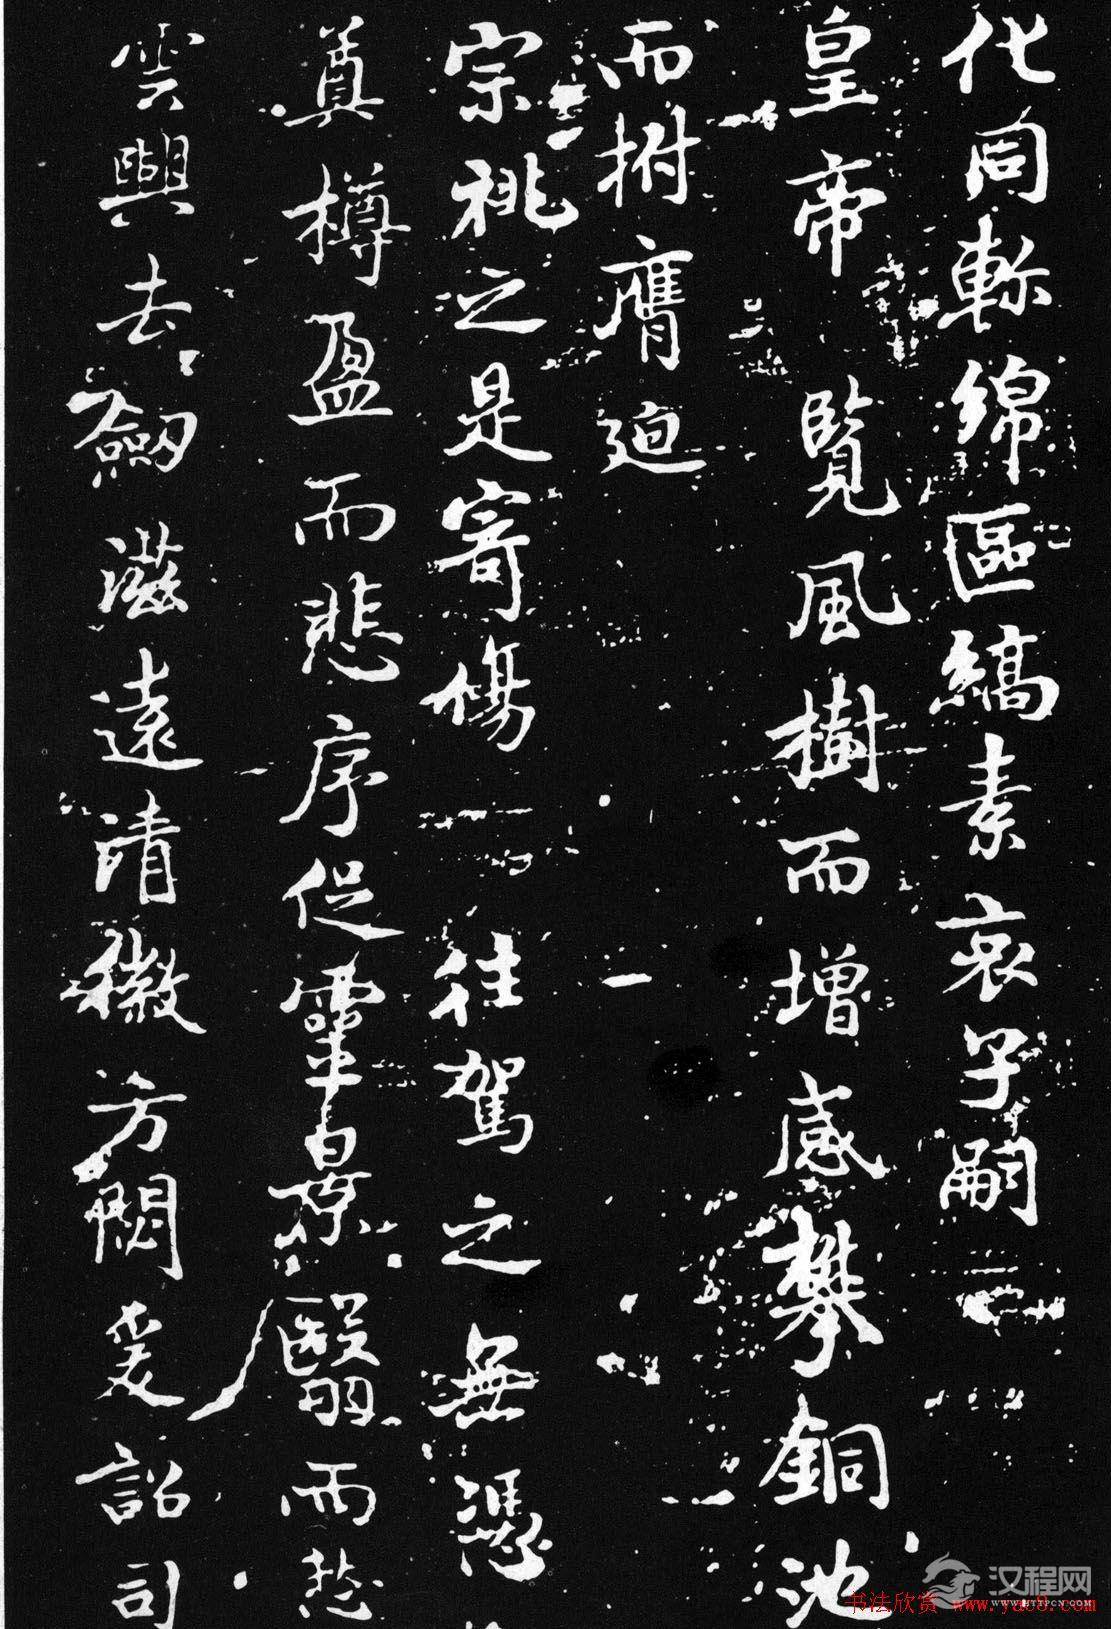 化同軫綿區縞素哀子嗣
皇帝覽風樹而增感攀銅池
而拊膺迫
宗祧之是寄傷往駕之無憑
奠樽盈而悲序促靈景翳而愁
雲興去劒滋遠清徽方閟爰詔司
汉程网
WWW.HTTPCN.COM
书法欣赏 www.yac8.com